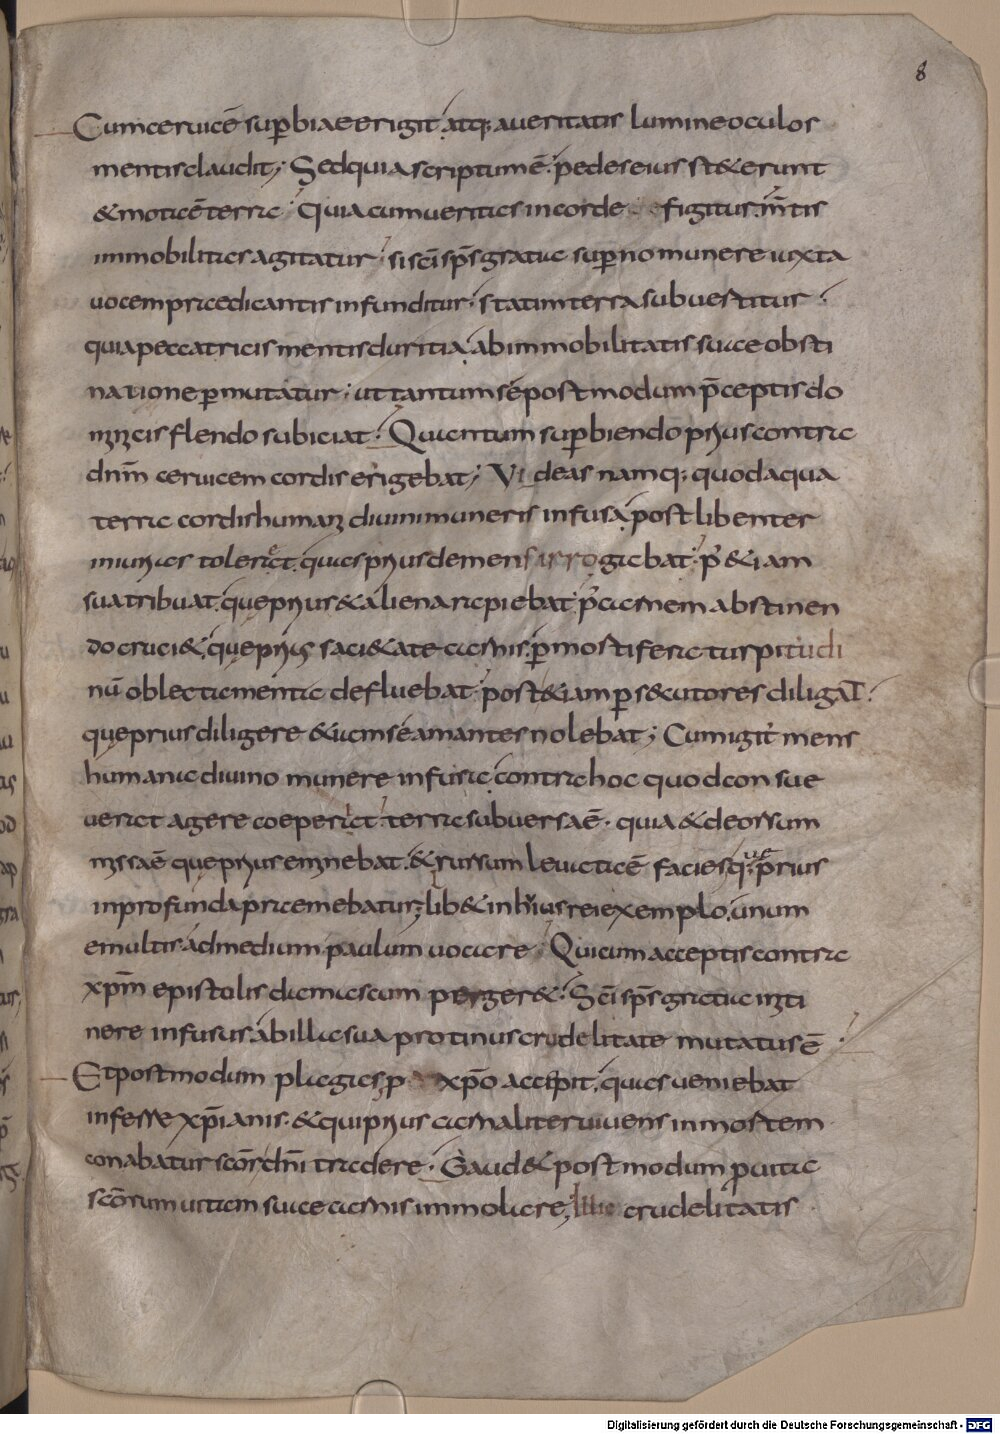 8
Cum ceruicē sup̄biae erigit, atq; a ueritatis lumine oculos
mentis claudit; Sed quia scriptum ē: pedes eius st&erunt
& mota ē terra; Quia cum ueritas in corde figitur: m̄tis
immobilitas agitatur; si sc̄i sp̄s gratia superno munere iuxta
uocem praedicantis infunditur; statim terra subuertitur;
quia peccatricis mentis duritia, ab immobilitatis suae obsti
natione p̄mutatur; ut tantum sé postmodum p̄ceptis do
flendo subiciat; Quantum sup̄biendo prius contra
dn̄m ceruicem cordis erigebat; Videas namq; quod aqua
terra cordis humani diuini muneris infusa, post libenter
iniurias toleret, quas prius demens irrogabat; p̄ &iam
sua tribuat, quę prius & aliena rapiebat; p̄ carnem abstinen
do cruci&, quę prius saci&ate carnis, p̄ mortifera turpitudi
nū oblectamenta defluebat; post &iam p̄s&utores diligat̄;
quę prius diligere & iam sé amantes nolebat; Cum igit' mens
humana diuino munere infusa, contra hoc quod consue
uerat agere coeperit: terra subuersa ē. quia & deorsum
missa ē quę prius eminebat, & sursum leuata ē facies quę prius
in profunda praemebatur; lib& in hui' rei exemplo, unum
e multis ad medium paulum uocare; Qui cum acceptis contra
xp̄m epistolis damascum perger&; Sc̄i sp̄s gratia in iti
nere infusus, ab illa sua protinus crudelitate mutatus ē;
Et postmodum plagas, p xp̄o accepit, quas ueniebat
inferre xp̄ianis. & qui prius carnaliter uiuens in mortem
conabatur sc̄or̄ dn̄i tradere; Gaud& postmodum p̄ uita
sc̄orum uitam suae carnis immolare, crudelitatis
Digitalisierung gefördert durch die Deutsche Forschungsgemeinschaft - DFG